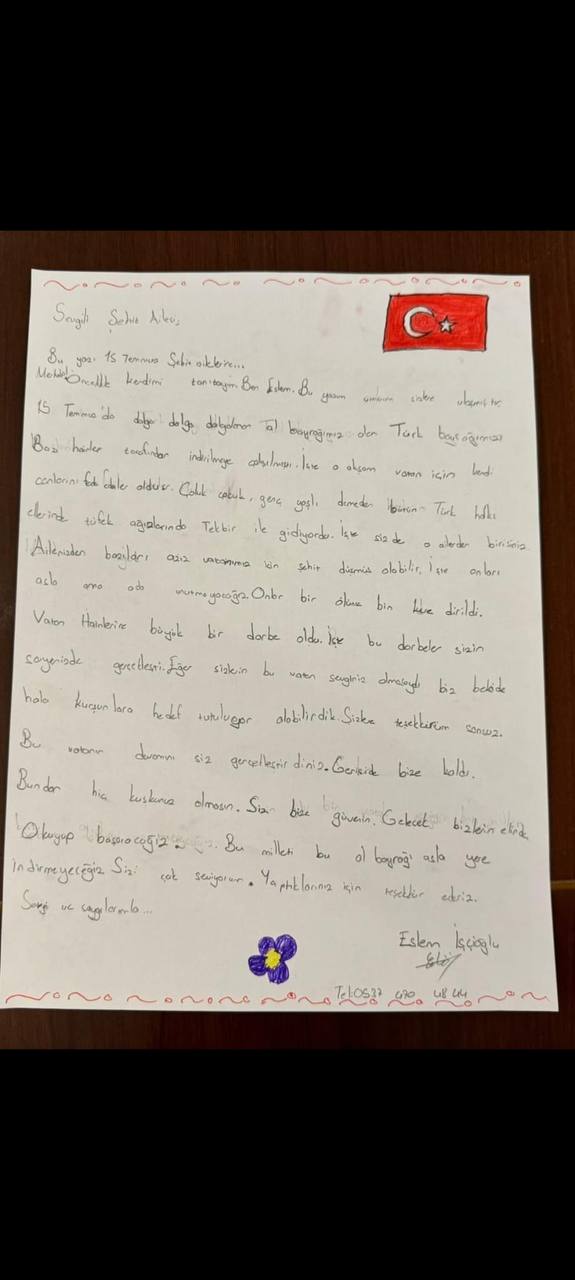 Sevgili Şehit Ailesi,
Bu yazı 15 Temmuz Şehit ailelerine...
Öncelikle kendimi tanıtayım Ben Eslem. Bu yazım umarım sizlere ulaşmıştır.
15 Temmuz'da dalga dalga dalgalanan al bayrağımız olan Türk bayrağımızı
Bazı hainler tarafından indirilmeye çalışılmıştı. İşte o akşam vatan için kendi
canlarını feda edenler oldular. Çoluk çocuk, genç yaşlı demeden bütün Türk halkı
ellerinde tüfek ağızlarında Tekbir ile gidiyordu. İşte siz de o ailerden birisiniz
Ailenizden bazıları aziz vatanımız için şehit düşmüş olabilir. İşte onları
asla ama asla unutmayacağız. Onlar bir ölüm bin kere dirildi.
Vatan Hainlerine büyük bir darbe oldu. İşte bu darbeler sizin
sayenizde gerçekleşti. Eğer sizlerin bu vatan sevginiz olmasaydı biz belkide
hala kurşunlara hedef tutuluyor olabilirdik. Sizlere teşekkürüm sonsuz.
Bu vatanın devamını siz gerçekleştirdiniz. Gerisi de bize kaldı.
Bundan hiç kuşkunuz olmasın. Siz bize güvenin. Gelecek bizlerin elinde
Okuyup başaracağız. Bu milleti bu al bayrağı asla yere
indirmeyeceğiz Sizi çok seviyorum. Yaptıklarınız için teşekkür ederiz.
Sevgi ve saygılarımla...
Eslem İşçioğlu
Tel:0537 470 48 44